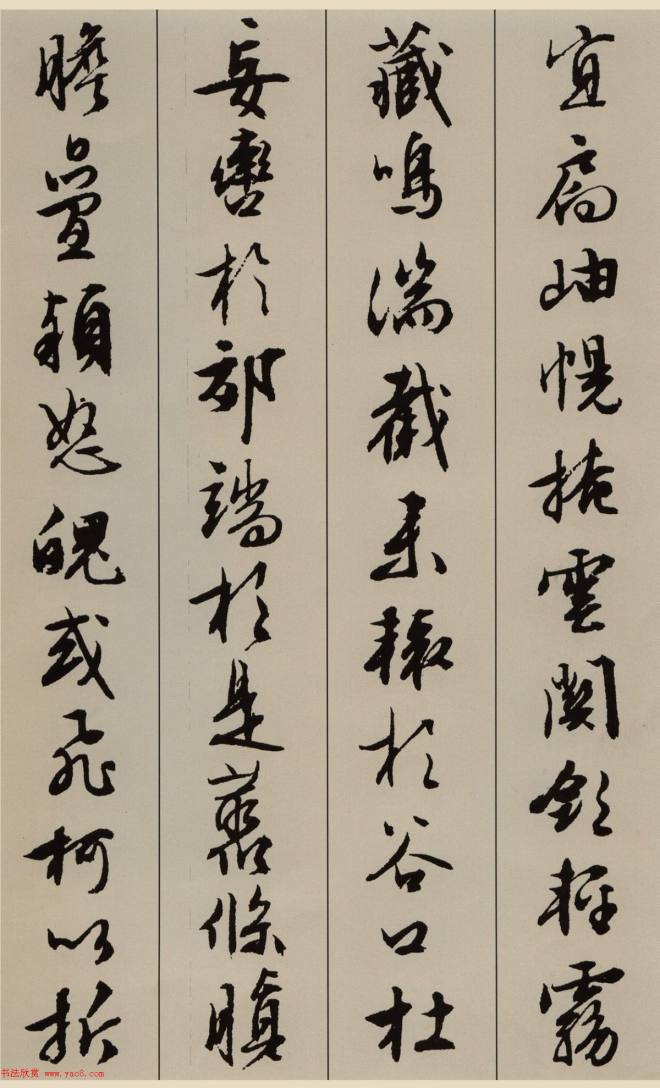 宜扃岫幌掩雲關斂輕霧
藏鳴湍截来轅於谷口杜
妄轡於郊端於是叢條瞋
瞻疊穎怒魄或飛柯以折
书法欣赏 www.yac8.com